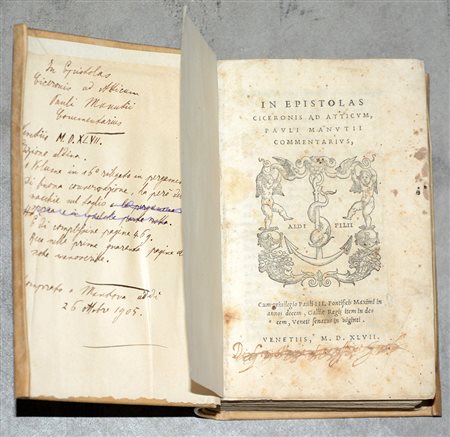 In Epistolas
Ciceronis ad Atticum
Pauli Manutii
Commentarius
M.D.XLVII.
Edizione aldina
Volume in 16° rilegato in pergamena
di buona conservazione, ha però
macchie sul taglio
di complessive pagine 469.
nelle prime quaranta pagine
note manoscritte.
Comprato a Mantova addì
26 ottobre 1905.
IN EPISTOLAS
CICERONIS AD ATTICUM,
PAULI MANUTII
COMMENTARIUS,
ALDI FILII
Cum privilegio Pauli III. Pontificis Maximi in
annos decem, Galliæ Regis item in de-
cem, Veneti senatus in viginti.
VENETIIS, M. D. XLVII.